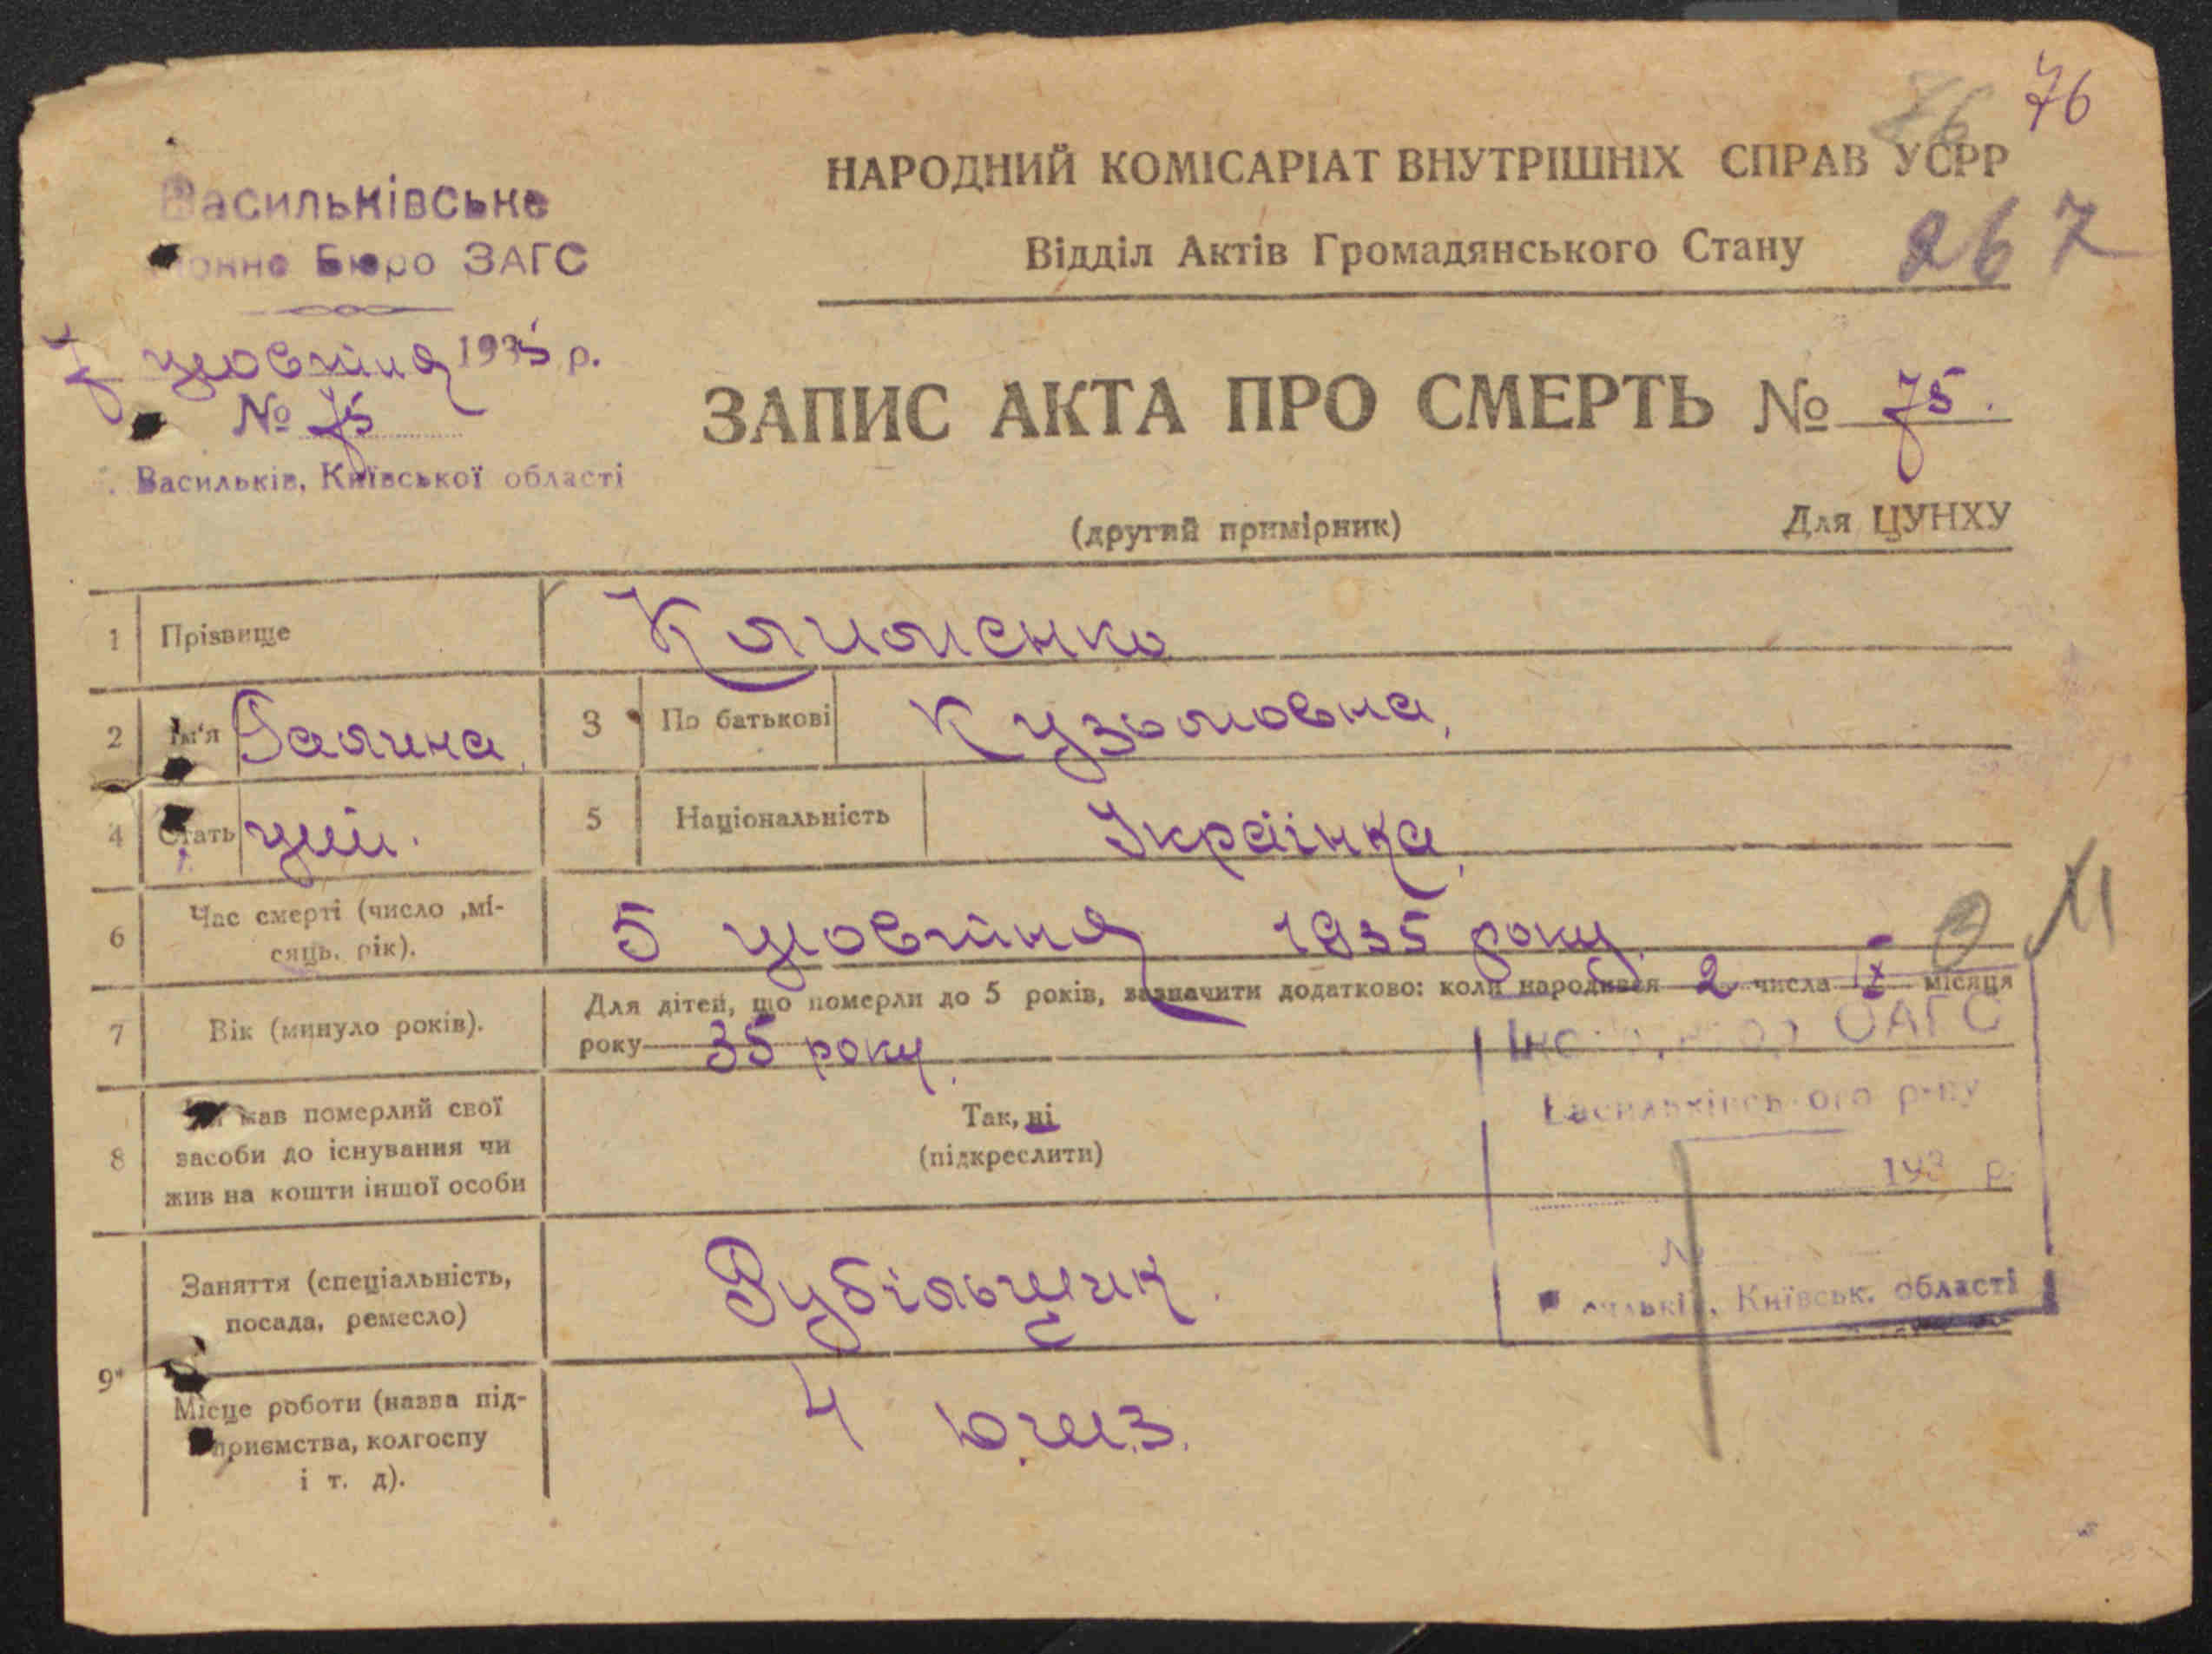 76 76
НАРОДНИЙ КОМІСАРІАТ ВНУТРІШНІХ СПРАВ УСРР
Відділ Актів Громадянського Стану
267
Васильківське
Бюро ЗАГС
7 жовтня 1935 р.
№ 75
Васильків, Київської області
ЗАПИС АКТА ПРО СМЕРТЬ № 75.
(другий примірник)
Для ЦУНХУ
1 Прізвище
2 Ім'я Галина
3 По батькові Кузьмовна,
4 Стать
5 Національність Українка,
6 Час смерті (число ,місяць, рік). 5 жовтня 1935 року
7 Вік (минуло років).
Для дітей, що померли до 5 років, зазначити додатково: коли народився 2 числа IX місяця
року 35 року.
8 мав померлий свої
засоби до існування чи
жив на кошти іншої особи
Так, ні
(підкреслити)
ЗАГС
Васильківського р-ну
193 р.
№
Київськ. області
9
Заняття (спеціальність,
посада, ремесло)
Місце роботи (назва під-
приємства, колгоспу
і т. д).